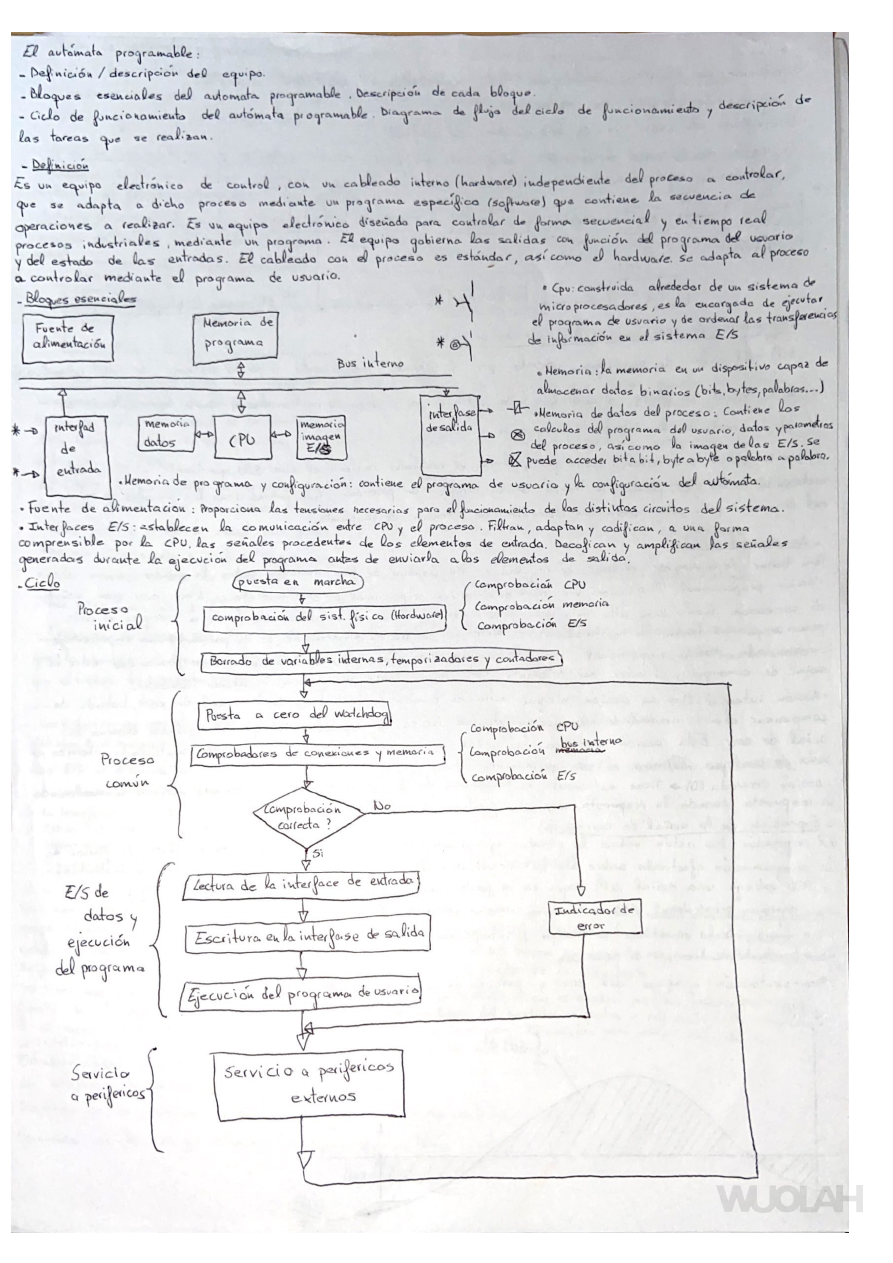 El autómata programable:
- Definición / descripción del equipo.
- Bloques esenciales del automata programable. Descripción de cada bloque.
- Ciclo de funcionamiento del autómata programable. Diagrama de flujo del ciclo de funcionamiento y descripción de
las tareas que se realizan.
- Definición
Es un equipo electrónico de control, con un cableado interno (hardware) independiente del proceso a controlar,
que se adapta a dicho proceso mediante un programa específico (software) que contiene la secuencia de
operaciones a realizar. Es un equipo electrónico diseñado para controlar de forma secuencial y en tiempo real
procesos industriales, mediante un programa. El equipo gobierna las salidas con función del programa del usuario
y del estado de las entradas. El cableado con el proceso es estándar, así como el hardware. Se adapta al proceso
a controlar mediante el programa de usuario.
- Bloques esenciales
Fuente de
alimentación
Memoria de
programa
Bus interno
*
*
• Cpu: construida alrededor de un sistema de
microprocesadores, es la encargada de ejecutar
el programa de usuario y de ordenar las transferencias
de información en el sistema E/S
• Memoria: la memoria en un dispositivo capaz de
almacenar datos binarios (bits, bytes, palabras...)
*
*
interfad
de
entrada
memoria
datos
CPU
memoria
imagen
E/S
interfase
de salida
• Memoria de datos del proceso: Contiene los
calculos del programa del usuario, datos y parametros
del proceso, así como la imagen de las E/S. Se
puede acceder bit a bit, byte a byte o palabra a palabra.
• Memoria de programa y configuración: contiene el programa de usuario y la configuración del autómata.
• Fuente de alimentación: Proporciona las tensiones necesarias para el funcionamiento de los distintos circuitos del sistema.
• Interfaces E/S: establecen la comunicación entre CPU y el proceso. Filtran, adaptan y codifican, a una forma
comprensible por la CPU, las señales procedentes de los elementos de entrada. Decofican y amplifican las señales
generadas durante la ejecución del programa antes de enviarla a los elementos de salida.
- Ciclo
Proceso
inicial
puesta en marcha
comprobación del sist. físico (Hardware)
Comprobación CPU
Comprobación memoria
Comprobación E/S
Borrado de variables internas, temporizadores y contadores
Proceso
común
Puesta a cero del watchdog
Comprobadores de conexiones y memoria
Comprobación CPU
Comprobación bus interno
Comprobación E/S
Comprobación
correcta?
No
Si
E/S de
datos y
ejecución
del programa
Lectura de la interface de entrada
Escritura en la interfase de salida
Ejecución del programa de usuario
Indicador de
error
Servicio
a perifericos
Servicio a perifericos
externos
WUOLAH